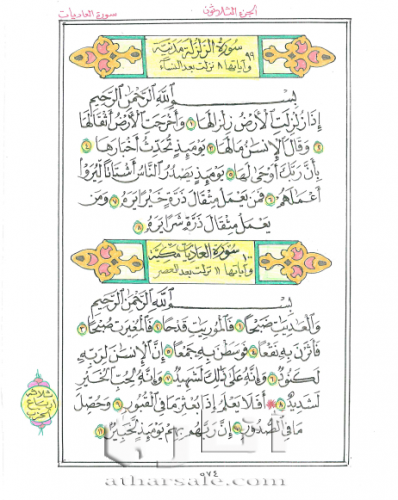 الجزء الثلاثون
سورة العاديات
سورة الزلزلة مدنية
وآياتها ٨ نزلت بعد النساء
بسم الله الرحمن الرحيم
إذا زلزلت الأرض زلزالها ١ وأخرجت الأرض أثقالها
٢ وقال الإنسن مالها ٣ يومئذ تحدث أخبارها ٤
بأن ربك أوحى لها ٥ يومئذ يصدر الناس أشتاتا ليروا
أعملهم ٦ فمن يعمل مثقال ذرة خيرا يره ٧ ومن
يعمل مثقال ذرة شرا يره ٨
١٠٠ سورة العاديات مكية
وآياتها ١١ نزلت بعد العصر
بسم الله الرحمن الرحيم
والعديت ضبحا ١ فالموريت قدحا ٢ فالمغيرت صبحا ٣
فأثرن به نقعا ٤ فوسطن به جمعا ٥ إن الإنسن لربه
لكنود ٦ وإنه على ذلك لشهيد ٧ وإنه لحب الخير
لشديد ٨ أفلا يعلم إذا بعثر ما في القبور ٩ وحصل
ما في الصدور ١٠ إن ربهم بهم يومئذ لخبير ١١
ثلاثة
أرباع
الحزب
٩٧٤
atharsale.com